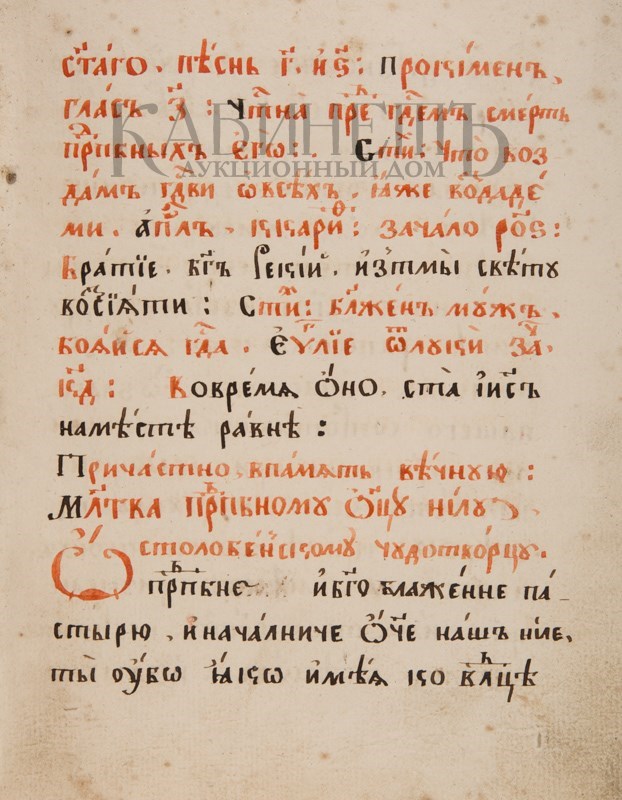 ст҃аго. пѣснь г҃. и ѕ҃: Прокіменъ,
гласъ з҃: Чтⷭ҇на прⷣе гдⷭ҇емъ смерть
прпⷣбныхъ є҆гѡ̀: Стиⷯ: Что воз
дамъ гдⷭ҇ви ѡ всѣхъ, ꙗ҆́же воздаде́
ми. а҆пⷭ҇лъ, к карииⷴ: зачало ро҃ѕ:
Братїе, бг҃ъ рекїй, и҆з тмы̀ свѣту
возсїѧ́ти: Стиⷯ: бл҃женъ мужъ,
боѧ́йсѧ гдⷭ҇а. Є҆ѵⷢ҇лїе ѿ лукѝ заⷱ҇.
к҃д: Во времѧ ѻ҆́но, ста̀ і҆и҃съ
на мѣ́стѣ ра́внѣ:
Причастно, в память вѣчную:
Мл҃тва прпⷣбному ѻ҆ц҃у нілу
столобе́нскому чудотворцу.
Ѽ прпⷣбне и҆ бг҃облаже́нне па-
стырю, и҆ нача́лниче ѻ҆́ч҃е нашъ ні́ле,
ты̀ оу҆́бѡ ꙗ҆́кѡ и҆мѣ́ѧ ко влⷣцѣ
КАБИНЕТЪ
АУКЦИОННЫЙ ДОМ